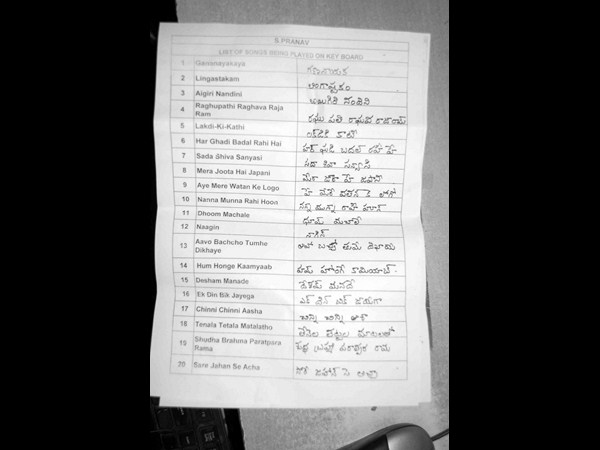 S.PRANAV
LIST OF SONGS BEING PLAYED ON KEY BOARD
1 Gananayakaya గణనాయక
2 Lingastakam లింగాష్టకం
3 Aigiri Nandini అఖుగిరి నందిని
4 Raghupathi Raghava Raja Ram రఘు పతి రాఘవ రాజారామ్
5 Lakdi-Ki-Kathi లక్డికి కాటి
6 Har Ghadi Badal Rahi Hai హర్ ఘడి బదల్ రహీ హే
7 Sada Shiva Sanyasi సదా శివా సన్యాసి
8 Mera Joota Hai Japani మేరా జోతా హై జపాని
9 Aye Mere Watan Ke Logo హె మేరే వతన్ కె లోగో
10 Nanna Munna Rahi Hoon నన్న మున్న రాహీ హూన్
11 Dhoom Machale ధూమ్ మచాలె
12 Naagin నాగిన్
13 Aavo Bachcho Tumhe Dikhaye ఆవో బచ్చో తుమె దిఖాయె
14 Hum Honge Kaamyaab హమ్ హోంగె కామియాబ్.
15 Desham Manade దేశమ్ మనదే
16 Ek Din Bik Jayega ఎక్ దిన్ బిక్ జాయెగా
17 Chinni Chinni Aasha చిన్ని చిన్ని ఆశా
18 Tenala Tetala Matalatho తేనెల తేట్టల మాటలతో
19 Shudha Brahma Paratpara Rama శుద్ధ బ్రహ్మ పరాత్పర రామ
20 Sare Jahan Se Acha సారే జహాన్ సె అచ్చా